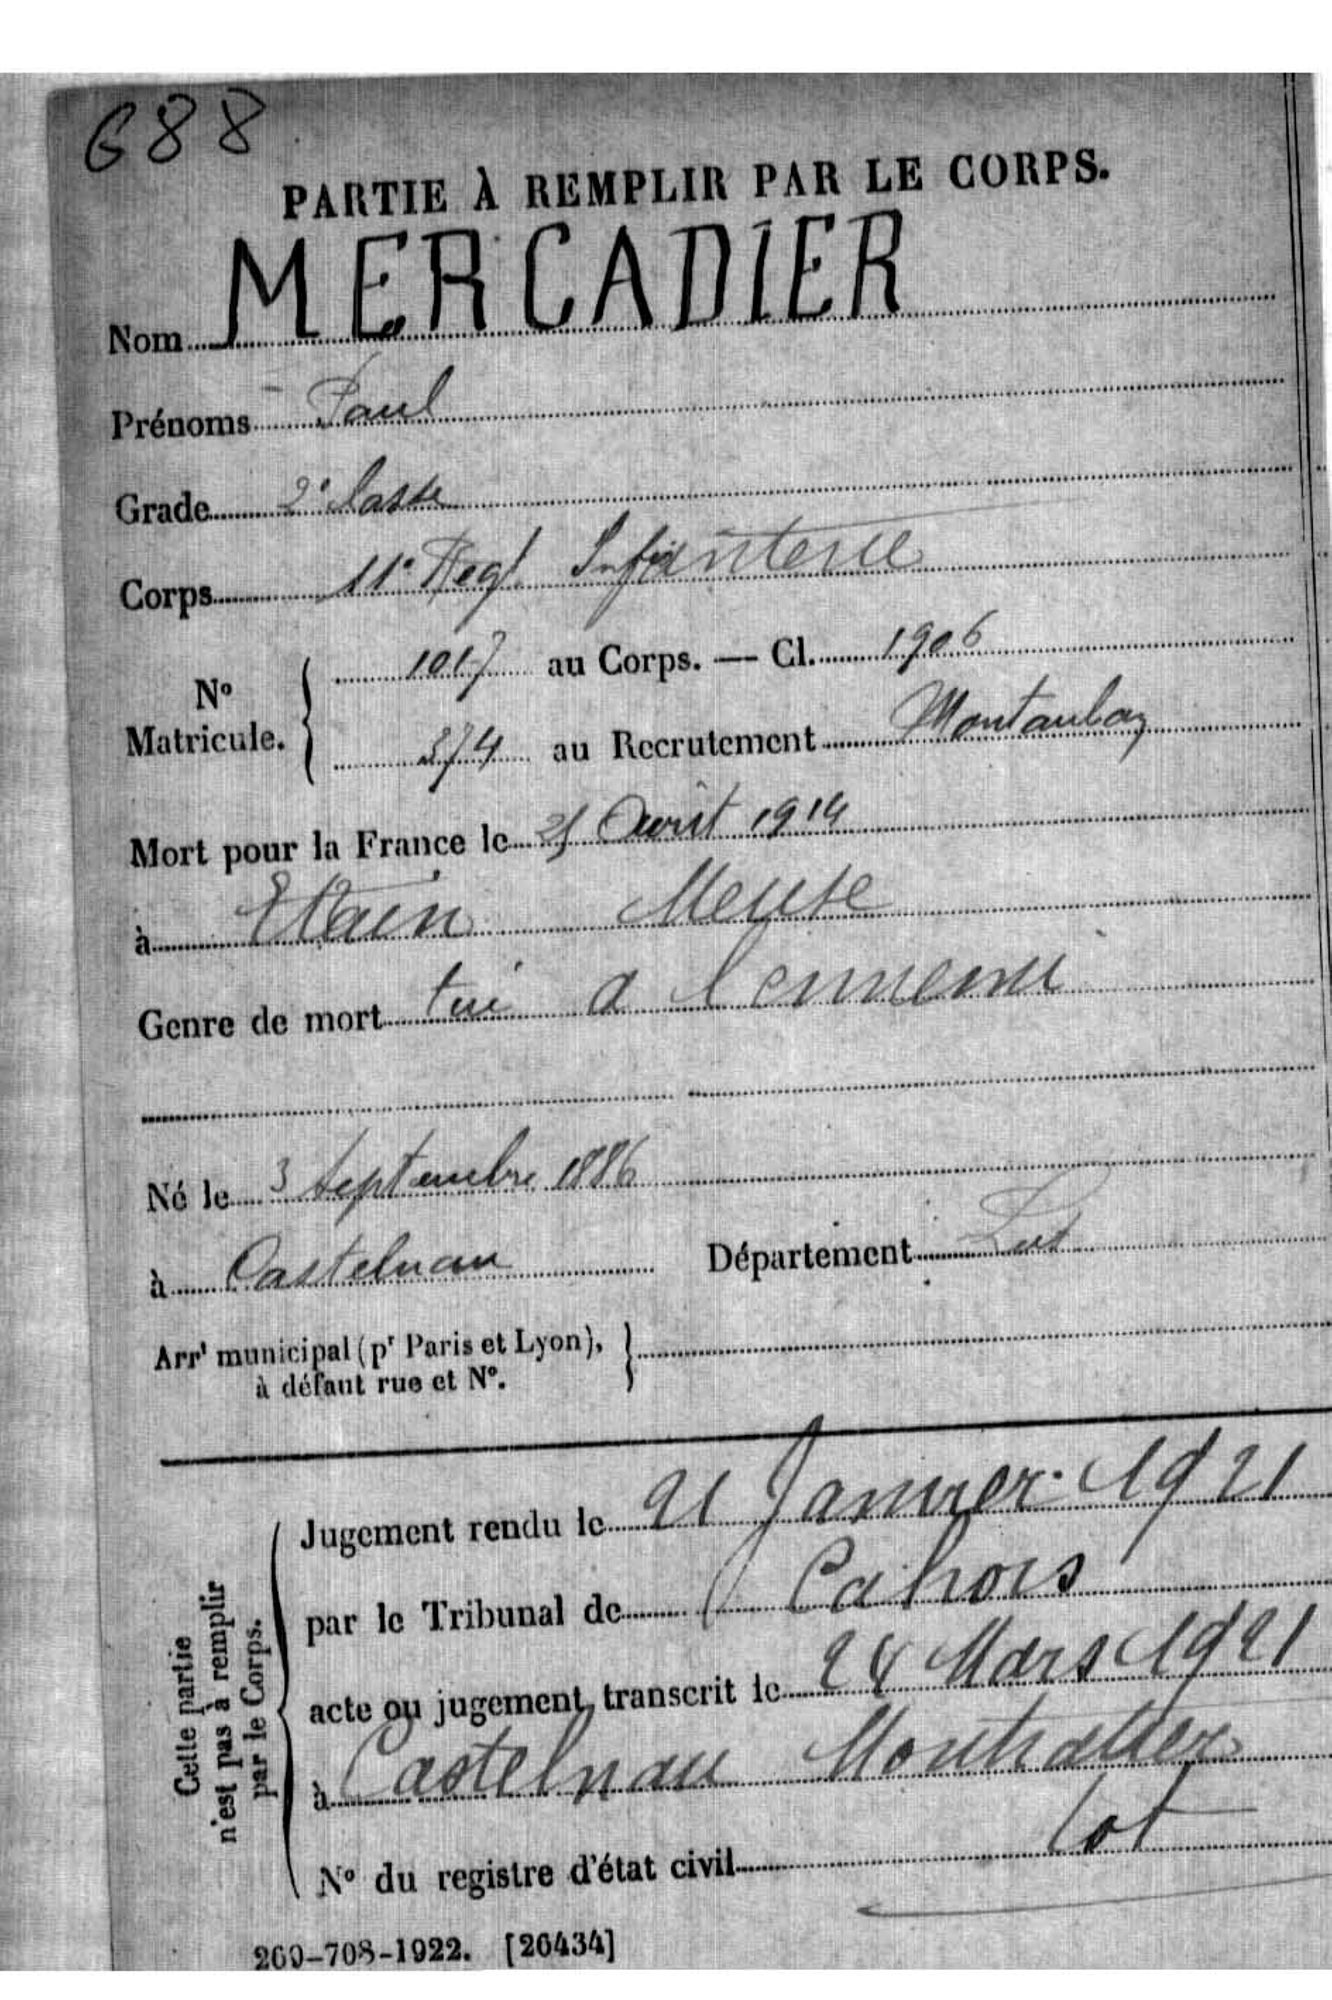 688
PARTIE À REMPLIR PAR LE CORPS.
Nom MERCADIER
Prénoms Paul
Grade 2e classe
Corps 11e Regt Infanterie
No Matricule. { 1017 au Corps. — Cl. 1906
374 au Recrutement Montauban
Mort pour la France le 25 Août 1914
à Etain Meuse
Genre de mort tué a l'ennemi
Né le 3 Septembre 1886
à Castelnau Département Lot
Arrt municipal (pr Paris et Lyon),
à défaut rue et No.
Cette partie n'est pas à remplir par le Corps.
Jugement rendu le 21 Janvier 1921
par le Tribunal de Cahors
acte ou jugement transcrit le 24 Mars 1921
à Castelnau Montratier
Lot
No du registre d'état civil
269-708-1922. [26434]